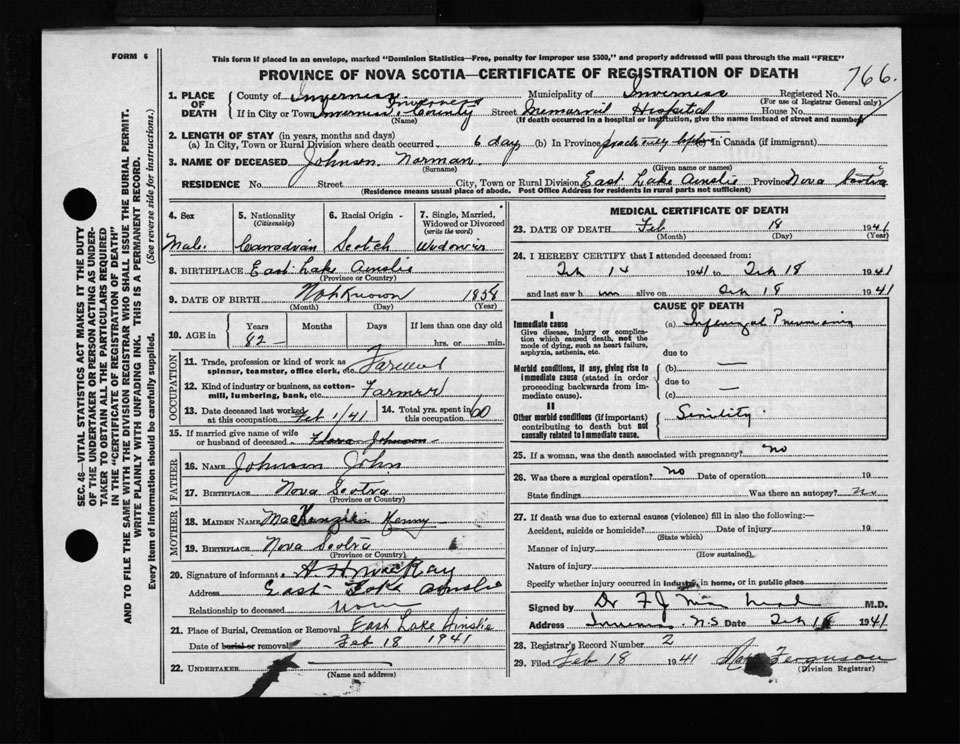 FORM 6
This form if placed in an envelope, marked "Dominion Statistics—Free, penalty for improper use $300," and properly addressed will pass through the mail "FREE"
PROVINCE OF NOVA SCOTIA—CERTIFICATE OF REGISTRATION OF DEATH
766.
1. PLACE OF DEATH
County of Inverness Municipality of Inverness Registered No.
(For use of Registrar General only)
If in City or Town Inverness Inverness County Street Memorial Hospital House No.
(Name) (If death occurred in a hospital or institution, give the name instead of street and number)
2. LENGTH OF STAY (in years, months and days)
(a) In City, Town or Rural Division where death occurred 6 day (b) In Province (c) In Canada (if immigrant)
3. NAME OF DECEASED Johnson Norman
(Surname) (Given name or names)
RESIDENCE No. Street City, Town or Rural Division East Lake Ainslie Province Nova Scotia
(Residence means usual place of abode. Post Office Address for residents in rural parts not sufficient)
4. Sex
Male
5. Nationality (Citizenship)
Canadian
6. Racial Origin
Scotch
7. Single, Married, Widowed or Divorced (write the word)
Widower
8. BIRTHPLACE East Lake Ainslie
(Province or Country)
9. DATE OF BIRTH Not Known 1858
(Month) (Day) (Year)
10. AGE in Years Months Days If less than one day old
82 hrs. or min.
OCCUPATION
11. Trade, profession or kind of work as spinner, teamster, office clerk, etc. Farmer
12. Kind of industry or business, as cotton-mill, lumbering, bank, etc. Farmer
13. Date deceased last worked at this occupation Feb 1/41
14. Total yrs. spent in this occupation 60
15. If married give name of wife or husband of deceased Johnson
FATHER
16. NAME Johnson John
17. BIRTHPLACE Nova Scotia
(Province or Country)
MOTHER
18. MAIDEN NAME MacKenzie Kenny
19. BIRTHPLACE Nova Scotia
(Province or Country)
20. Signature of informant A. H MacKay
Address East Lake Ainslie
Relationship to deceased None
21. Place of Burial, Cremation or Removal East Lake Ainslie
Date of burial or removal Feb 18 1941
22. UNDERTAKER
(Name and address)
MEDICAL CERTIFICATE OF DEATH
23. DATE OF DEATH Feb 18 1941
(Month) (Day) (Year)
24. I HEREBY CERTIFY that I attended deceased from:
Feb 14 1941 to Feb 18 1941
and last saw him alive on Feb 18 1941
CAUSE OF DEATH
I
Immediate cause
Give disease, injury or complication which caused death, not the mode of dying, such as heart failure, asphyxia, asthenia, etc.
(a) Pneumonia
due to
Morbid conditions, if any, giving rise to immediate cause (stated in order proceeding backwards from immediate cause).
(b) —
due to
(c) —
II
Other morbid conditions (if important) contributing to death but not causally related to immediate cause.
Senility.
25. If a woman, was the death associated with pregnancy? no
26. Was there a surgical operation? no Date of operation 19
State findings Was there an autopsy? no
27. If death was due to external causes (violence) fill in also the following:—
Accident, suicide or homicide? Date of injury 19
(State which)
Manner of injury
(How sustained)
Nature of injury
Specify whether injury occurred in industry, in home, or in public place
Signed by Dr F J M.D.
Address N.S. Date Feb 18 1941
28. Registrar's Record Number 2
29. Filed Feb 18 1941 Ferguson
(Division Registrar)
SEC. 46—VITAL STATISTICS ACT MAKES IT THE DUTY
OF THE UNDERTAKER OR PERSON ACTING AS UNDER-
TAKER TO OBTAIN ALL THE PARTICULARS REQUIRED
IN THE "CERTIFICATE OF REGISTRATION OF DEATH"
AND TO FILE THE SAME WITH THE DIVISION REGISTRAR WHO SHALL ISSUE THE BURIAL PERMIT.
WRITE PLAINLY WITH UNFADING INK. THIS IS A PERMANENT RECORD.
Every item of information should be carefully supplied. (See reverse side for instructions.)